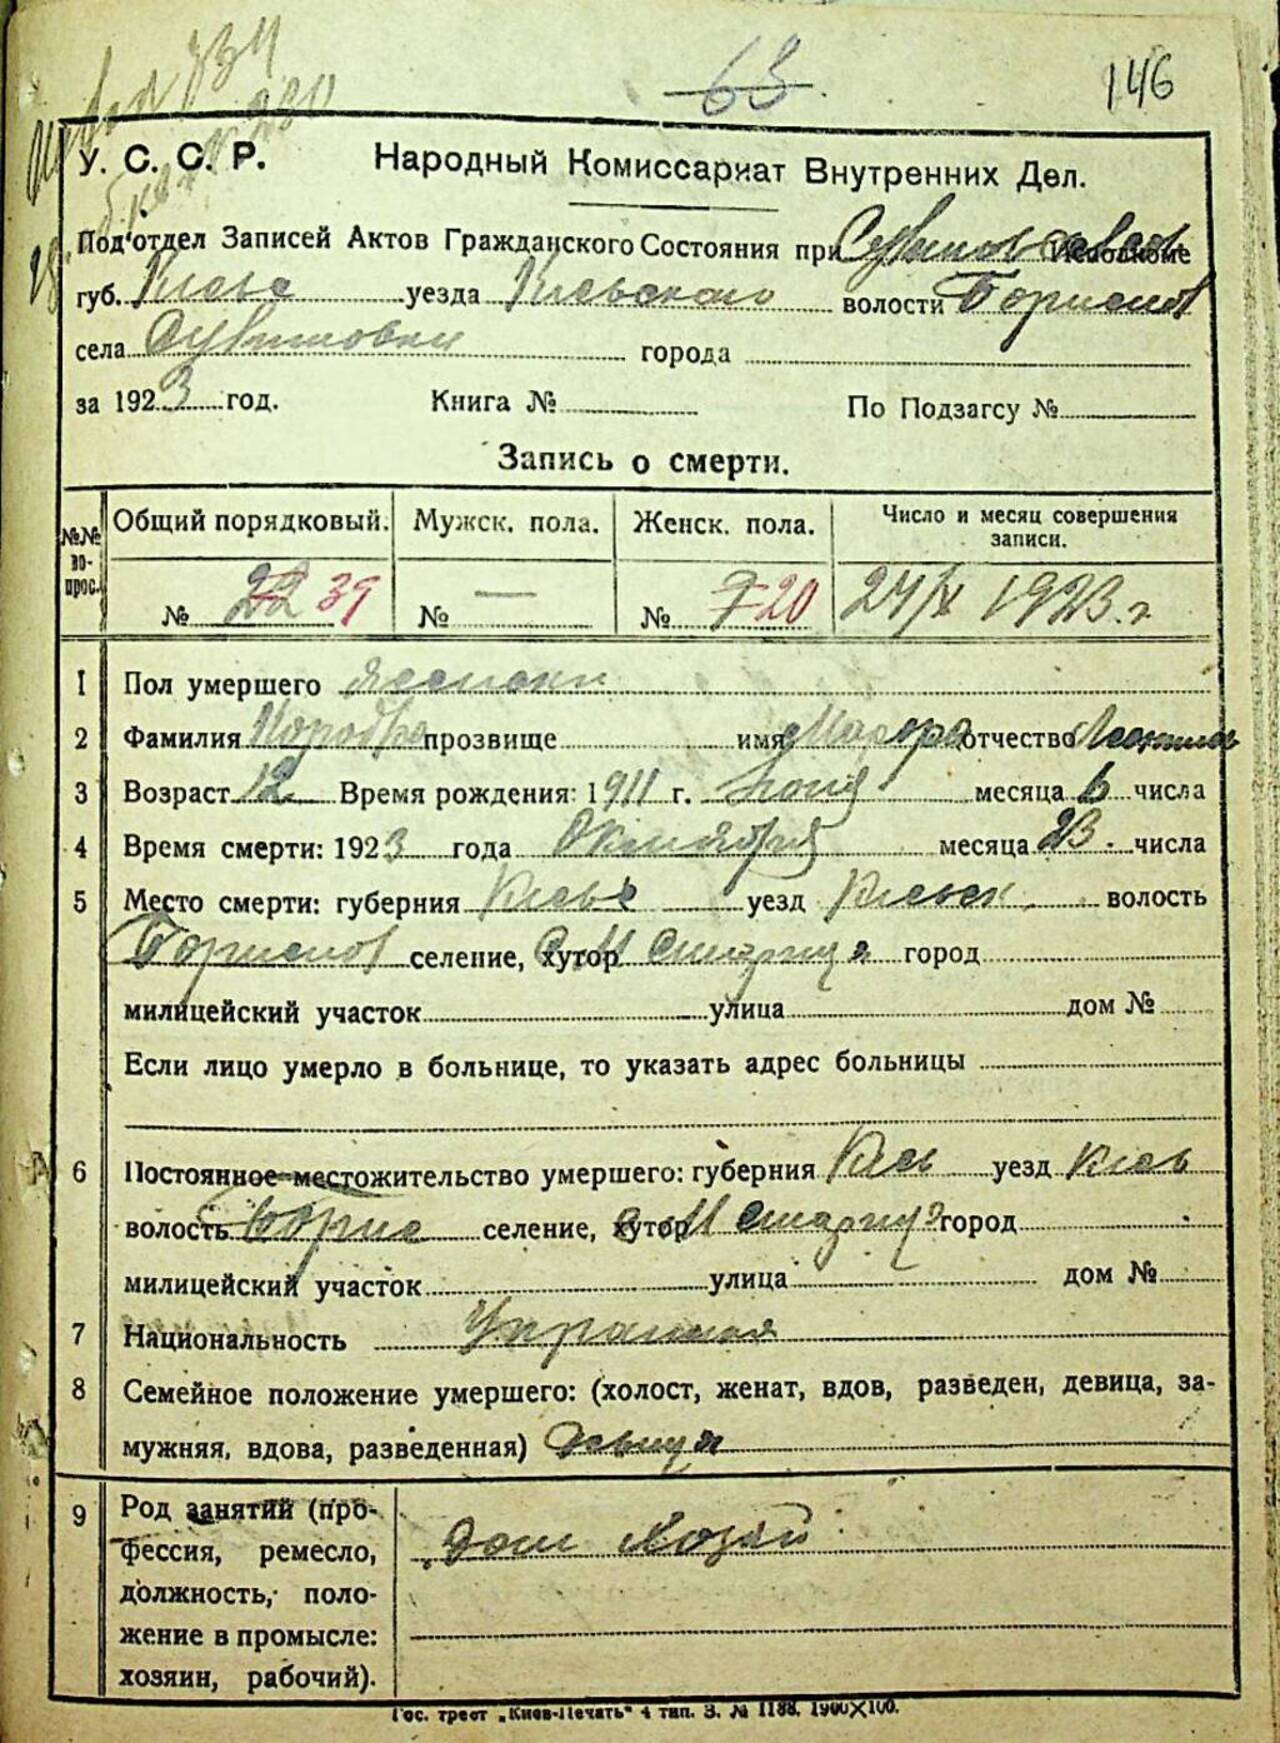 63. 146
У. С. С. Р. Народный Комиссариат Внутренних Дел.
Под'отдел Записей Актов Гражданского Состояния при Исполкоме
губ. Киевс уезда Киевского волости Борисп
села города
за 1923 год. Книга № По Подзагсу №
Запись о смерти.
№№ вопрос. Общий порядковый. Мужск. пола. Женск. пола. Число и месяц совершения записи.
№ 22 39 № — № 7 20 24/X 1923 г
1 Пол умершего женски
2 Фамилия прозвище имя отчество
3 Возраст 12 Время рождения: 1911 г. месяца 6 числа
4 Время смерти: 1923 года Октября месяца 23. числа
5 Место смерти: губерния Киевс уезд Киевск волость
селение, хутор город
милицейский участок улица дом №
Если лицо умерло в больнице, то указать адрес больницы
6 Постоянное местожительство умершего: губерния Киев уезд Киев
волость Борис селение, хутор город
милицейский участок улица дом №
7 Национальность
8 Семейное положение умершего: (холост, женат, вдов, разведен, девица, за-
мужняя, вдова, разведенная) девица
9 Род занятий (про-
фессия, ремесло, дом хозяй
должность, поло-
жение в промысле:
хозяин, рабочий).
Гос. трест „Киев-Печать“ 4 тип. З. № 1188. 1900X100.